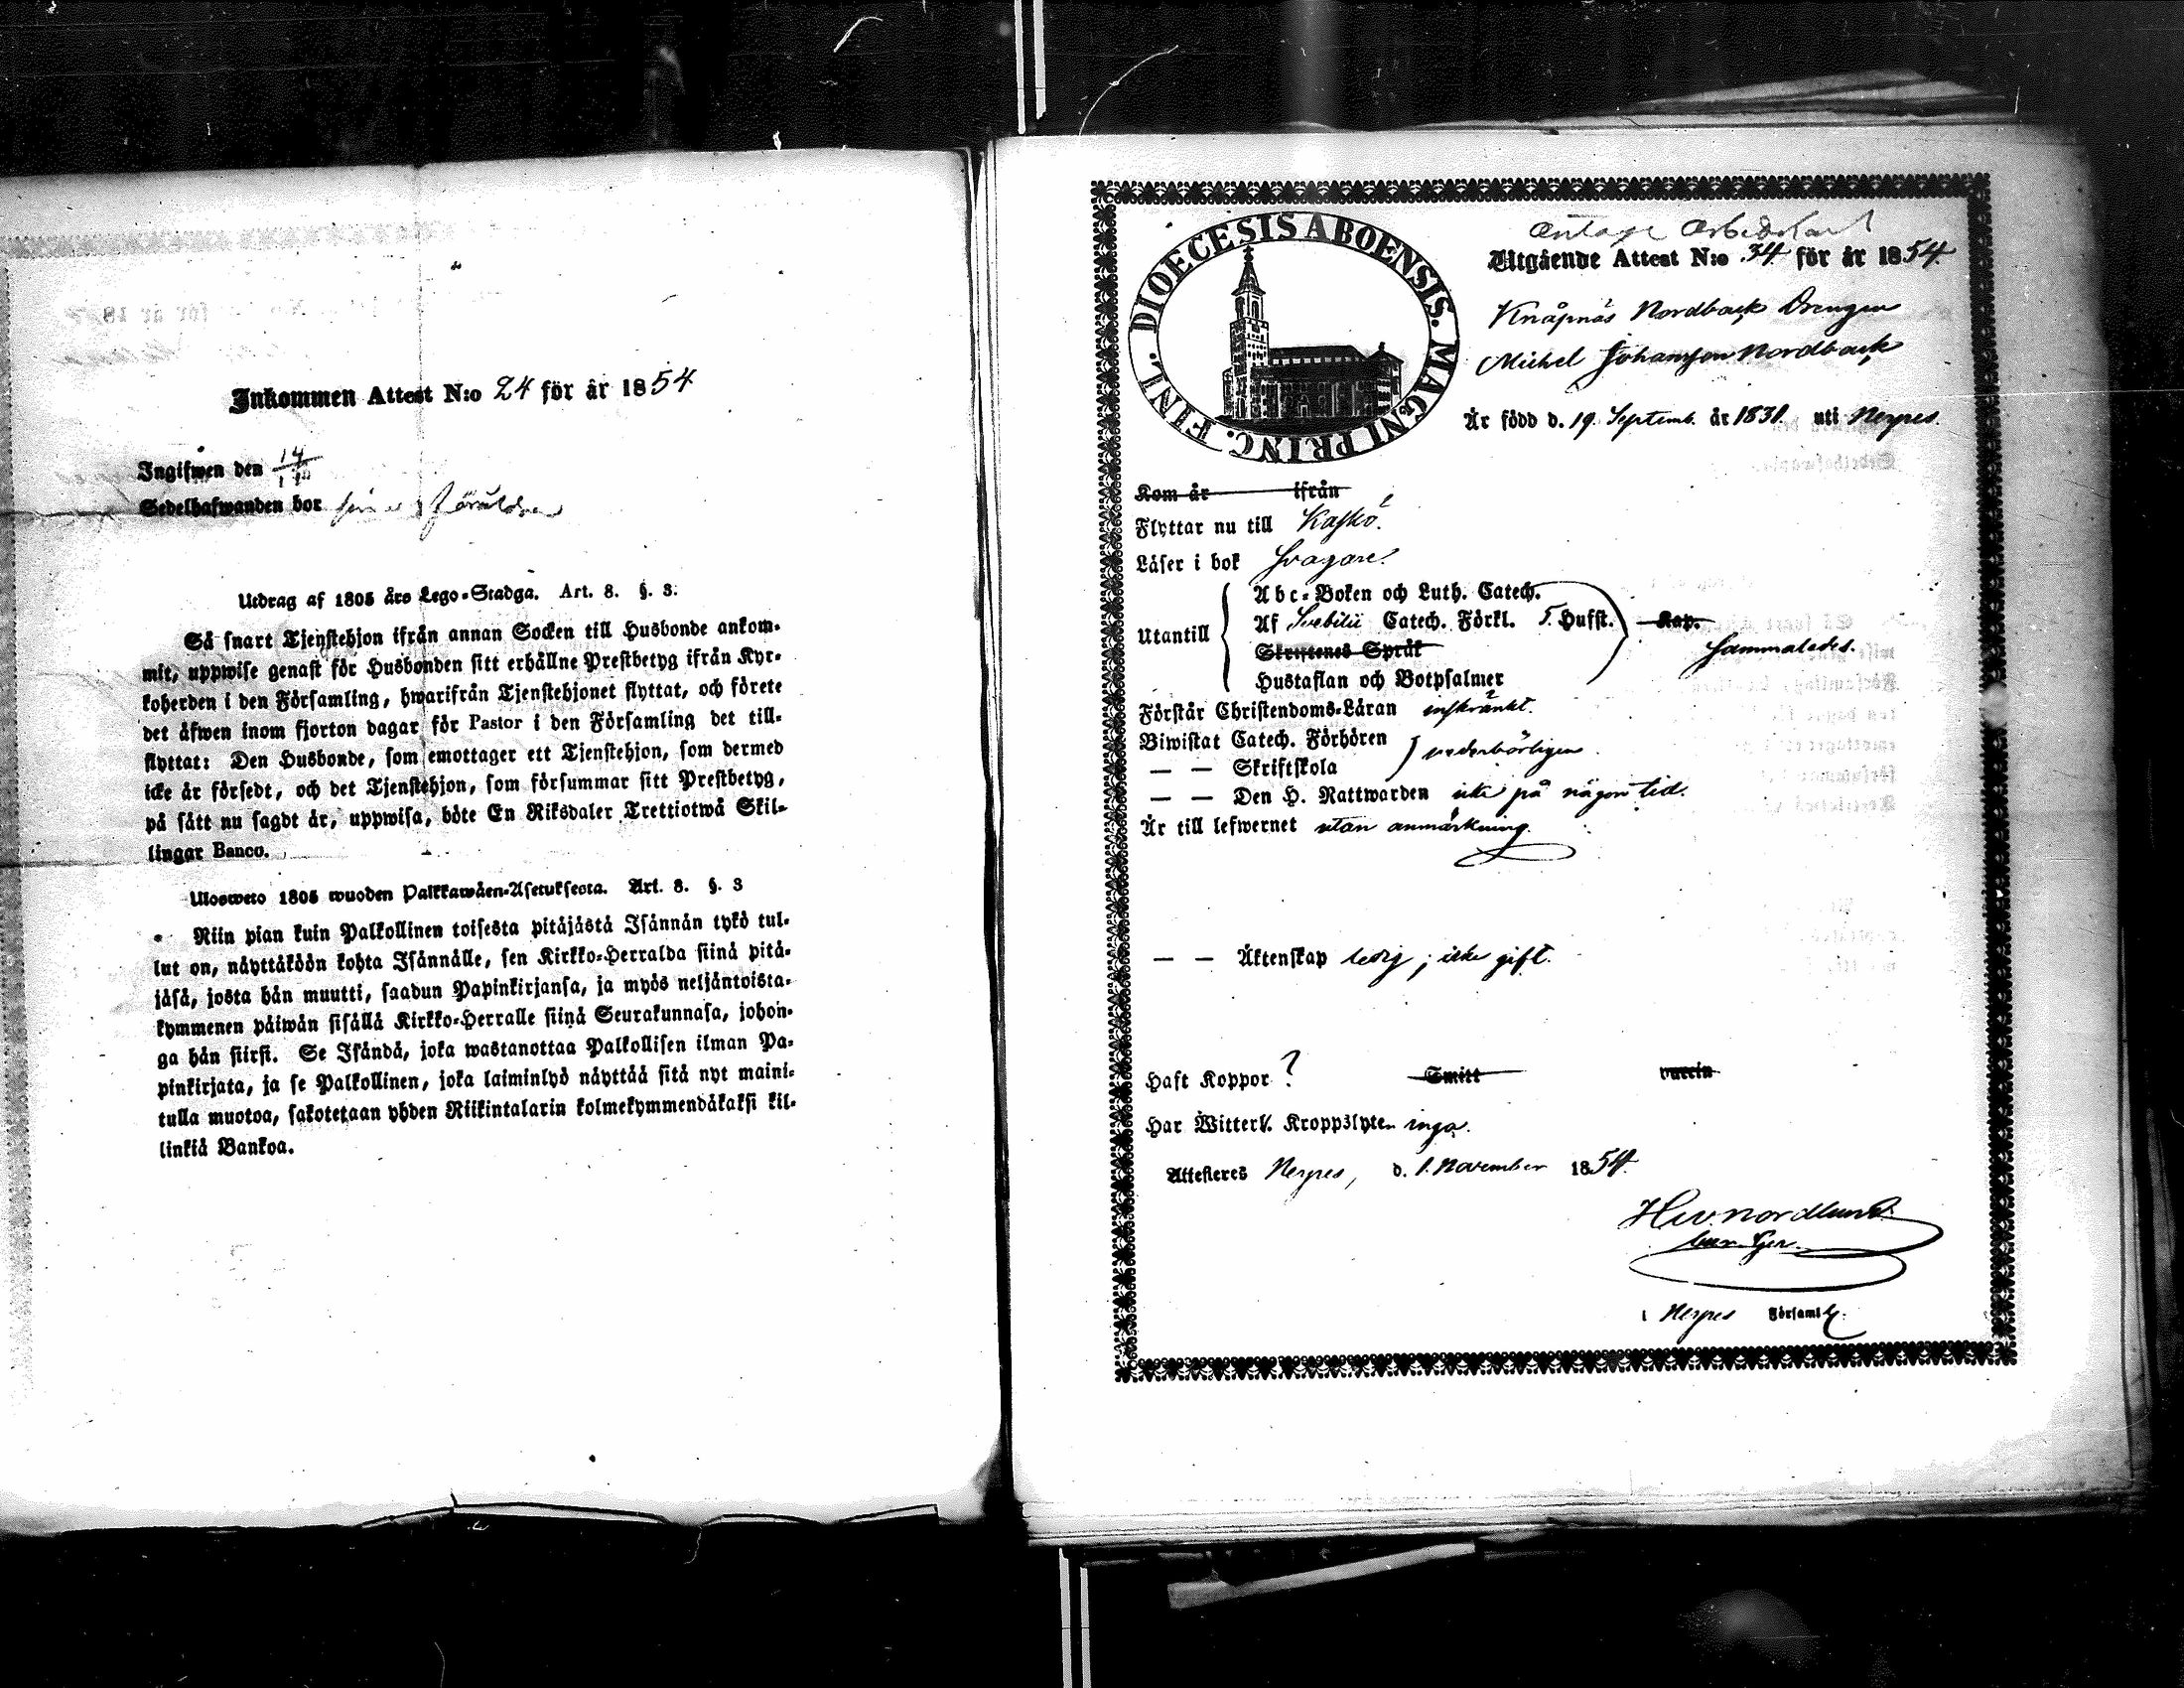 Inkommen Attest N:o 24 för år 1854
Ingifwen den 14/11
Sedelhafwanden bor
Utdrag af 1805 års Lego-Stadga. Art. 8. §. 3.
Så snart Tjenstehjon ifrån annan Socken till Husbonde ankom-
mit, uppwise genast för Husbonden sitt erhållne Prestbetyg ifrån Kyr-
koherden i den Församling, hwarifrån Tjenstehjonet flyttat, och förete
det äfwen inom fjorton dagar för Pastor i den Församling det till-
flyttat: Den Husbonde, som emottager ett Tjenstehjon, som dermed
icke är försedt, och det Tjenstehjon, som försummar sitt Prestbetyg,
på sätt nu sagdt är, uppwisa, böte En Riksdaler Trettiotwå Skil-
lingar Banco.
Ulosweto 1805 wuoden Palkkawäen-Asetuksesta. Art. 8. §. 3
Niin pian kuin Palkollinen toisesta pitäjästä Isännän tykö tul-
lut on, näyttäköön kohta Isännälle, sen Kirkko-Herralda siinä pitä-
jäsä, josta hän muutti, saadun Papinkirjansa, ja myös neljäntoista-
kymmenen päiwän sisällä Kirkko-Herralle siinä Seurakunnasa, johon-
ga hän siirsi. Se Isändä, joka wastanottaa Palkollisen ilman Pa-
pinkirjata, ja se Palkollinen, joka laiminlyö näyttää sitä nyt maini-
tulla muotoa, sakotetaan yhden Riikintalarin kolmekymmendäkaksi kil-
linkiä Bankoa.
DIOECESIS ABOENSIS. MAGNI PRINC. FINL.
Utgående Attest N:o 34 för år 1854.
Knåpnäs Nordback Drengen
Michel Johansson Nordback
Är född d. 19. Septemb. år 1831. uti Nerpes.
Kom år ifrån
Flyttar nu till Kaskö.
Läser i bok svagare.
Abc-Boken och Luth. Catech.
Utantill Af Svebilii Catech. Förkl. 5. Hufst. Kap.
Skriftenes Språk Sammaledes.
Hustaflan och Botpsalmer
Förstår Christendoms-Läran inskränkt.
Biwistat Catech. Förhören vederbörligen
— — Skriftskola
— — Den H. Nattwarden icke på någon tid.
Är till lefwernet utan anmärkning.
— — Äktenskap ledig; icke gift.
Haft Koppor ? Smitt vaccin
Har Witterl. Kroppslyten inga.
Attesteres Nerpes, d. 1. November 1854.
Nordlund
i Nerpes Församl.